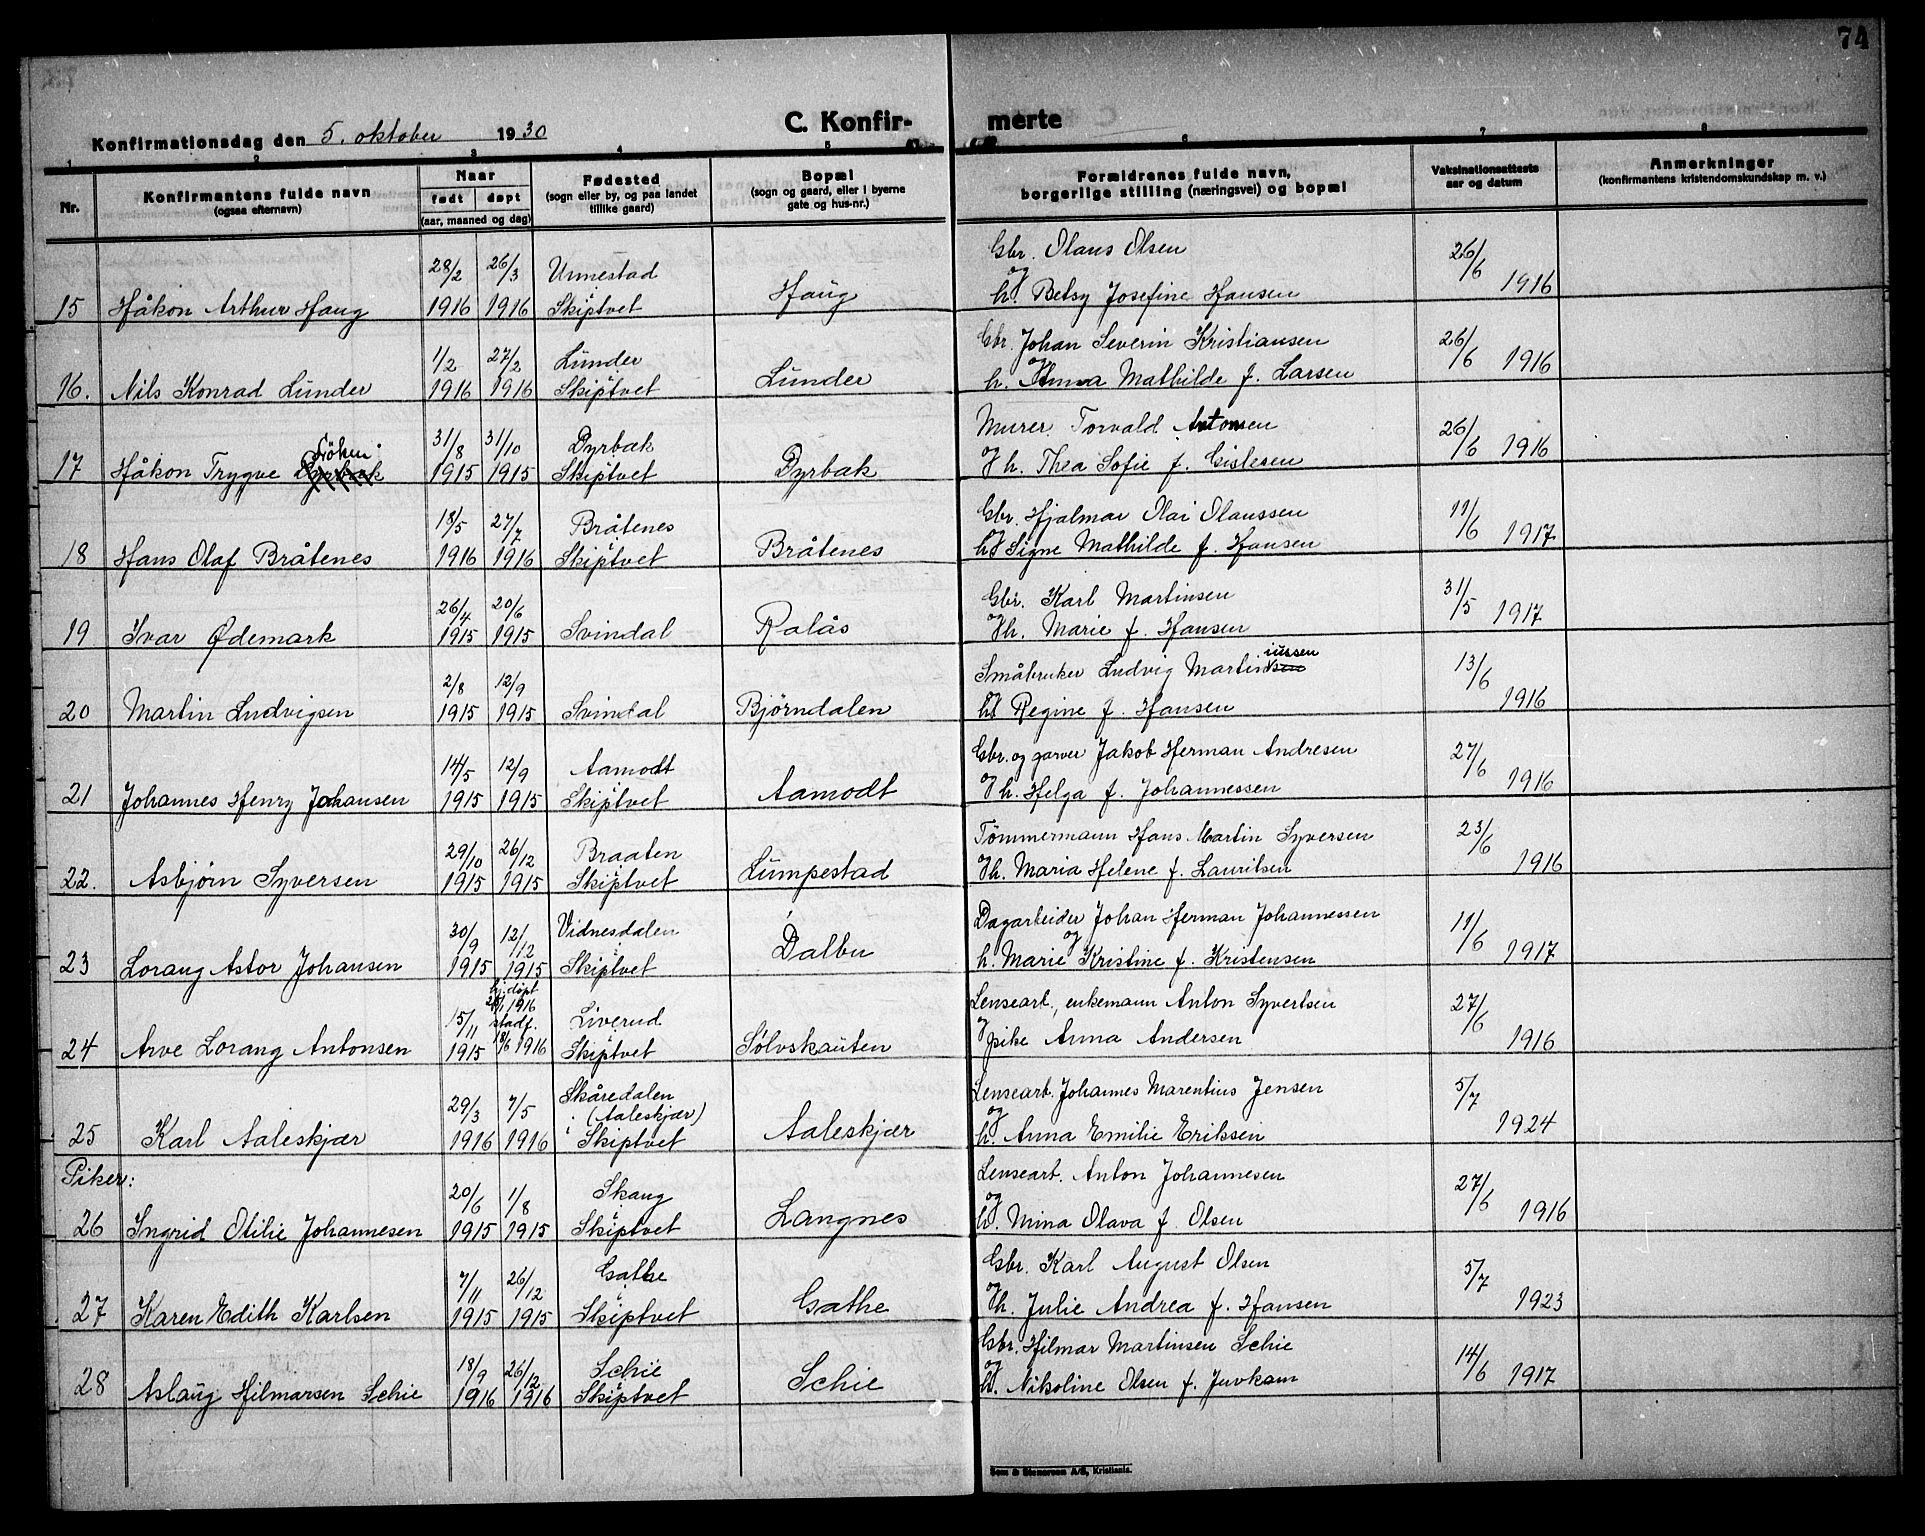 74
Konfirmationsdag den 5. oktober 1930
C. Konfir-
merte
1 2 3 4 5 6 7 8
Nr.
Konfirmantens fulde navn
(ogsaa efternavn)
Naar
født døpt
(aar, maaned og dag)
Fødested
(sogn eller by, og paa landet
tillike gaard)
Bopæl
(sogn og gaard, eller i byerne
gate og hus-nr.)
Forældrenes fulde navn,
borgerlige stilling (næringsvei) og bopæl
Vaksinationsattests
aar og datum
Anmerkninger
(konfirmantens kristendomskundskap m. v.)
28/2 26/3 Unnestad Gbr. Olaus Olsen 26/6
15 Håkon Arthur Haug 1916 1916 Skiptvet Haug og h. Betsy Josefine Hansen 1916
1/2 27/2 Lunder Gbr. Johan Severin Kristiansen 26/6
16. Nils Konrad Lunder 1916 1916 Skiptvet Lunder og h. Anna Mathilde f. Larsen 1916
31/8 31/10 Dyrbak Murer Torvald Antonsen 26/6
17 Håkon Trygve 1915 1915 Skiptvet Dyrbak og h. Thea Sofie f. Gislesen 1916
18/5 27/7 Bråtenes Gbr. Hjalmar Olai Olaussen 11/6
18 Hans Olaf Bråtenes 1916 1916 Skiptvet Bråtenes og h. Signe Mathilde f. Hansen 1917
26/4 20/6 Gbr. Karl Martinsen 31/5
19 Ivar Ødemark 1915 1915 Svindal Ralås og h. Marie f. Hansen 1917
2/8 12/9 Småbruker Ludvig Martiniussen 13/6
20 Martin Ludvigsen 1915 1915 Svindal Bjørndalen h. Regine f. Hansen 1916
14/5 12/9 Aamodt Gbr. og garver Jakob Herman Andresen 27/6
21 Johannes Henry Johansen 1915 1915 Skiptvet Aamodt og h. Helga f. Johannessen 1916
29/10 26/12 Braaten Tömmermann Hans Martin Syversen 23/6
22. Asbjørn Syversen 1915 1915 Skiptvet Lumpestad og h. Maria Helene f. Lauritsen 1916
30/9 12/12 Vidnesdalen Dagarbeider Johan Herman Johannessen 11/6
23 Lorang Astor Johansen 1915 1915 Skiptvet Dalbu og h. Marie Kristine f. Kristensen 1917
15/11 hj.døpt 1916 stadf. Liverud Lensearb., enkemann Anton Syvertsen 27/6
24 Arve Lorang Antonsen 1915 18/6 1916 Skiptvet Sölvskauten og pike Anna Andersen 1916
29/3 7/5 Skåredalen (Aaleskjær) Lensearb. Johannes Marentius Jensen 5/7
25 Karl Aaleskjær 1916 1916 i Skiptvet Aaleskjær og h. Anna Emilie Eriksen 1924
Piker:
20/6 1/8 Skaug Lensearb. Anton Johannesen 27/6
26 Ingrid Otilie Johannesen 1915 1915 Skiptvet Langnes og h. Mina Olava f. Olsen 1916
7/11 26/12 Gathe Gbr. Karl August Olsen 5/7
27 Karen Edith Karlsen 1915 1915 Skiptvet Gathe og h. Julie Andrea f. Hansen 1923
18/9 26/12 Schie Gbr. Hilmar Martinsen Schie 14/6
28 Aslaug Hilmarsen Schie 1916 1916 Skiptvet Schie og h. Nikoline Olsen f. Juvkam 1917